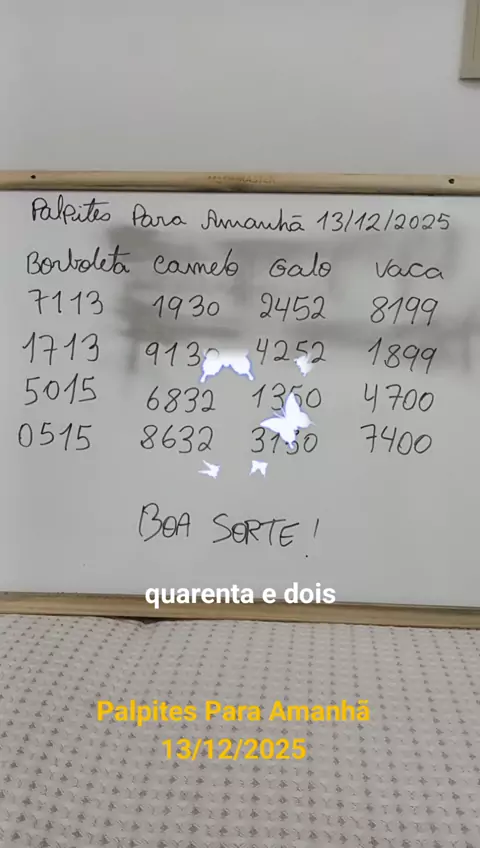 Palpites Para Amanhã 13/12/2025
Borboleta Camelo Galo Vaca
7113 1930 2452 8199
1713 9130 4252 1899
5015 6832 1350 4700
0515 8632 3150 7400
BOA SORTE!
quarenta e dois
Palpites Para Amanhã
13/12/2025